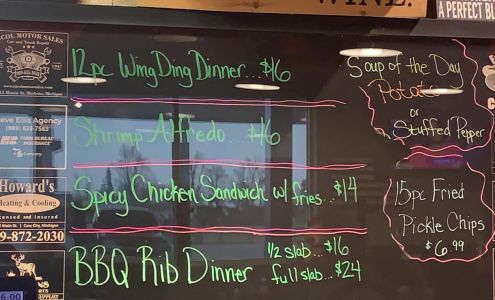 WINE.
A PERFECT BL
COL MOTOR SALES
Car and Truck Repair
12pc Wing Ding Dinner...$16
Shrimp Alfredo $16
Spicy Chicken Sandwich w/ fries...$14
BBQ Rib Dinner 1/2 slab...$16
full slab...$24
Soup of the Day
Potato
or
Stuffed Pepper
15pc Fried
Pickle Chips
$6.99
eve Ellis Agency
(989) 635-7563
FARM BUREAU
INSURANCE
Howard's
Heating & Cooling
Licensed and Insured
Main St. | Cass City, Michigan
9-872-2030
RTS
SUPPLIES
6.00